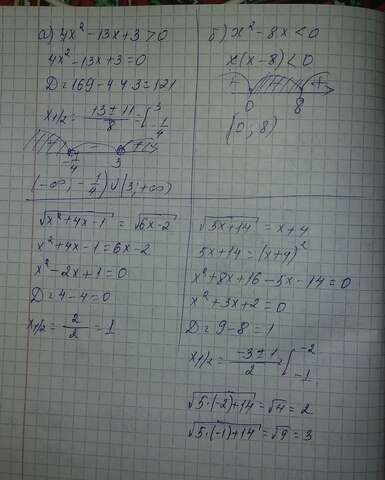 а) 4x² - 13x + 3 > 0
4x² - 13x + 3 = 0
D = 169 - 4·4·3 = 121
x1/2 = (13 ± 11)/8 = [ 3 ; 1/4
+ - +
-1/4 3
(-∞; -1/4) ∪ (3; +∞)
б) x² - 8x < 0
x(x - 8) < 0
+ - +
0 8
(0; 8)
√(x² + 4x - 1) = √(6x - 2)
x² + 4x - 1 = 6x - 2
x² - 2x + 1 = 0
D = 4 - 4 = 0
x1/2 = 2/2 = 1
√(5x + 14) = x + 4
5x + 14 = (x + 4)²
x² + 8x + 16 - 5x - 14 = 0
x² + 3x + 2 = 0
D = 9 - 8 = 1
x1/2 = (-3 ± 1)/2 [ -2 ; -1
√(5·(-2) + 14) = √4 = 2
√(5·(-1) + 14) = √9 = 3